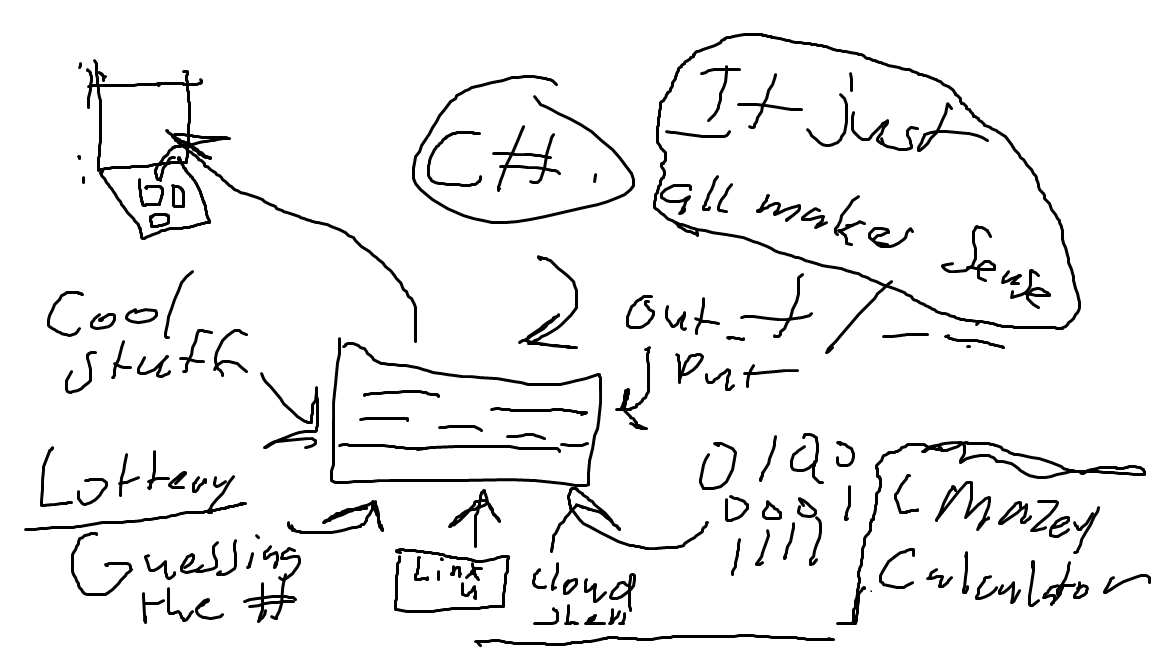 C#.
It just
all makes sense
Cool
stuff
Out
Put
Lottery
Guessing
the #
Cloud
0100
0001
1111
Calculator